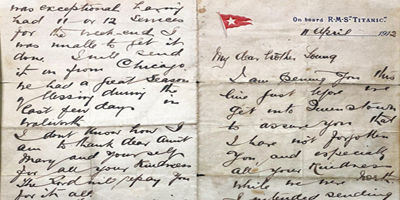 was exceptional having
had 11 or 12 services
for the week-end I
was unable to get it
done I will send
it on from Chicago
we had a great Season
of blessing during the
last few days in
Walworth
I don't know how I
am to thank dear Aunt
Mary and yourself
for all your Kindness
The Lord will repay you
for it all
On board R.M.S. "TITANIC".
11 April 1912
My dear brother Young
I am penning you this
line just before we
get into Queenstown
to assure you that
I have not forgotten
You and especially
all your Kindness
while we were North.
I intended sending